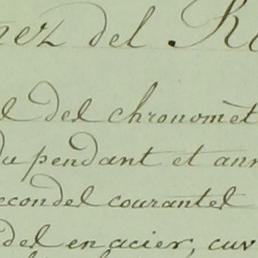 nez del R
l del chronomèt
du pendant et ann
econdel courantel
del en acier, cuv